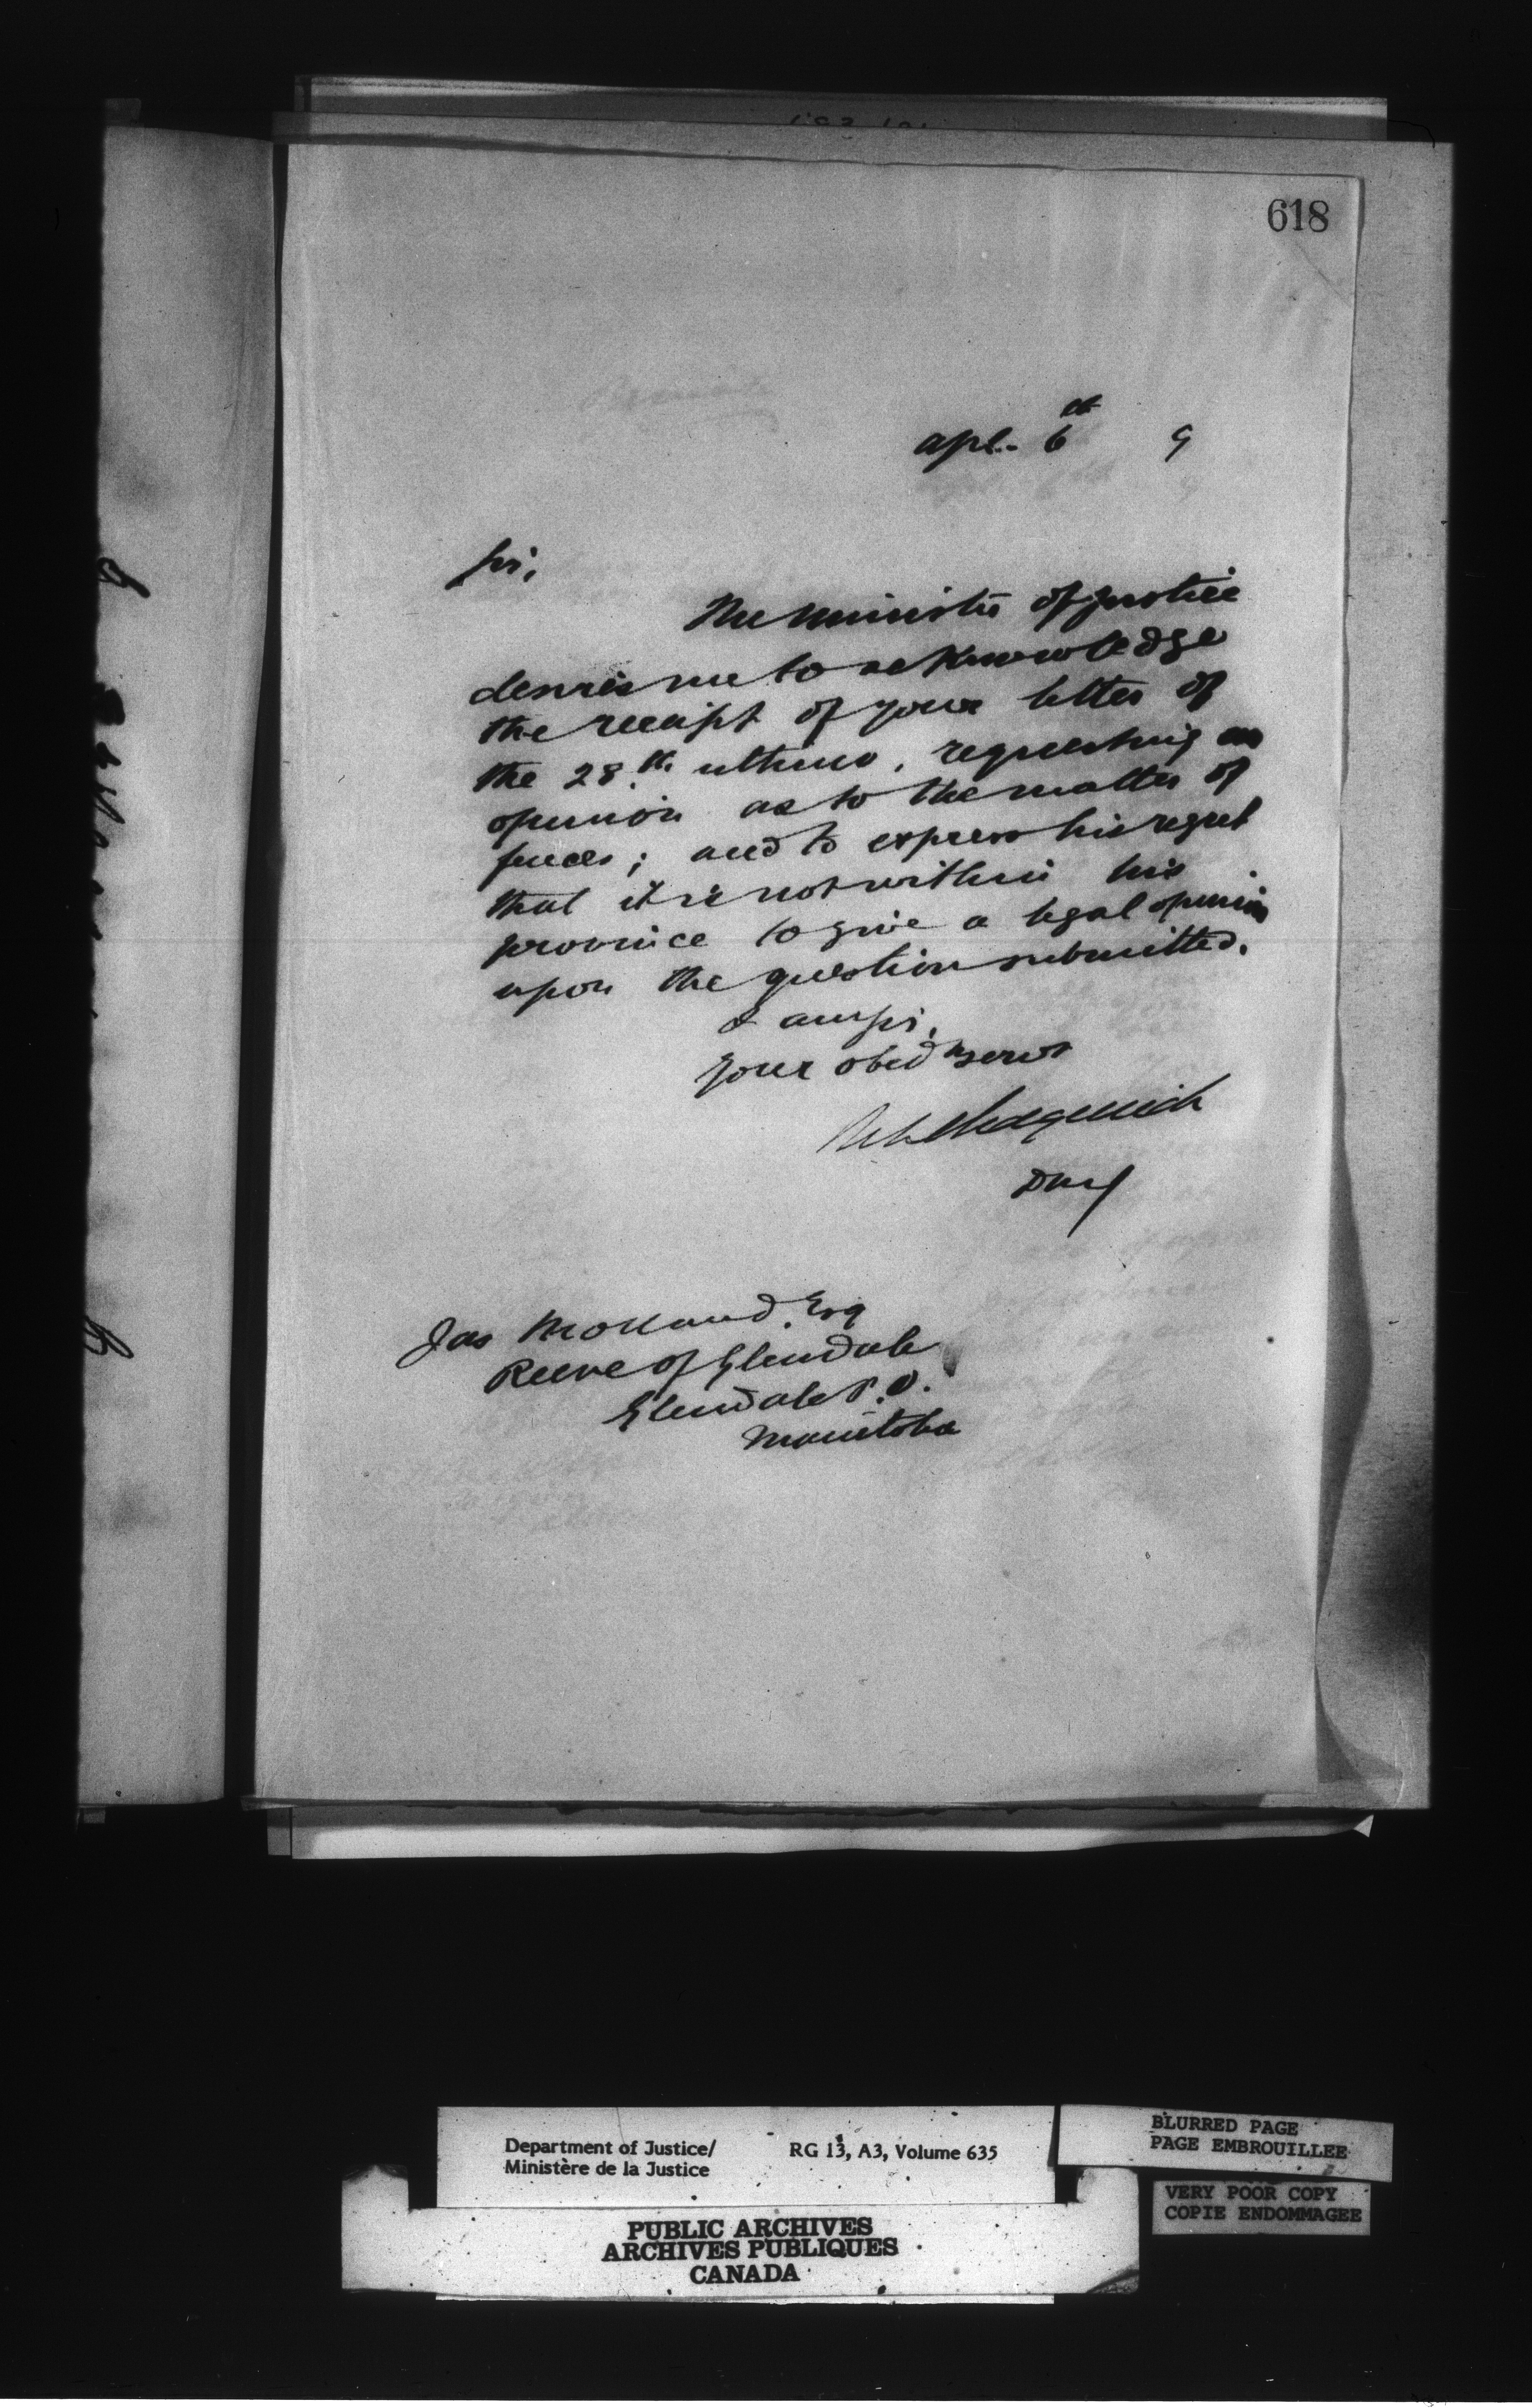 618
Apl. 6th 9
Sir,
The Minister of Justice
desires me to acknowledge
the receipt of your letter of
the 28th ultimo, requesting an
opinion as to the matter of
fences; and to express his regret
that it is not within his
province to give a legal opinion
upon the question submitted.
I am Sir,
Your obedt servt
Sedgewick
DMJ
Jas Esq
Reeve of Glendale
Glendale P.O.
Manitoba
Department of Justice/
Ministère de la Justice
RG 13, A3, Volume 635
PUBLIC ARCHIVES
ARCHIVES PUBLIQUES
CANADA
BLURRED PAGE
PAGE EMBROUILLEE
VERY POOR COPY
COPIE ENDOMMAGEE